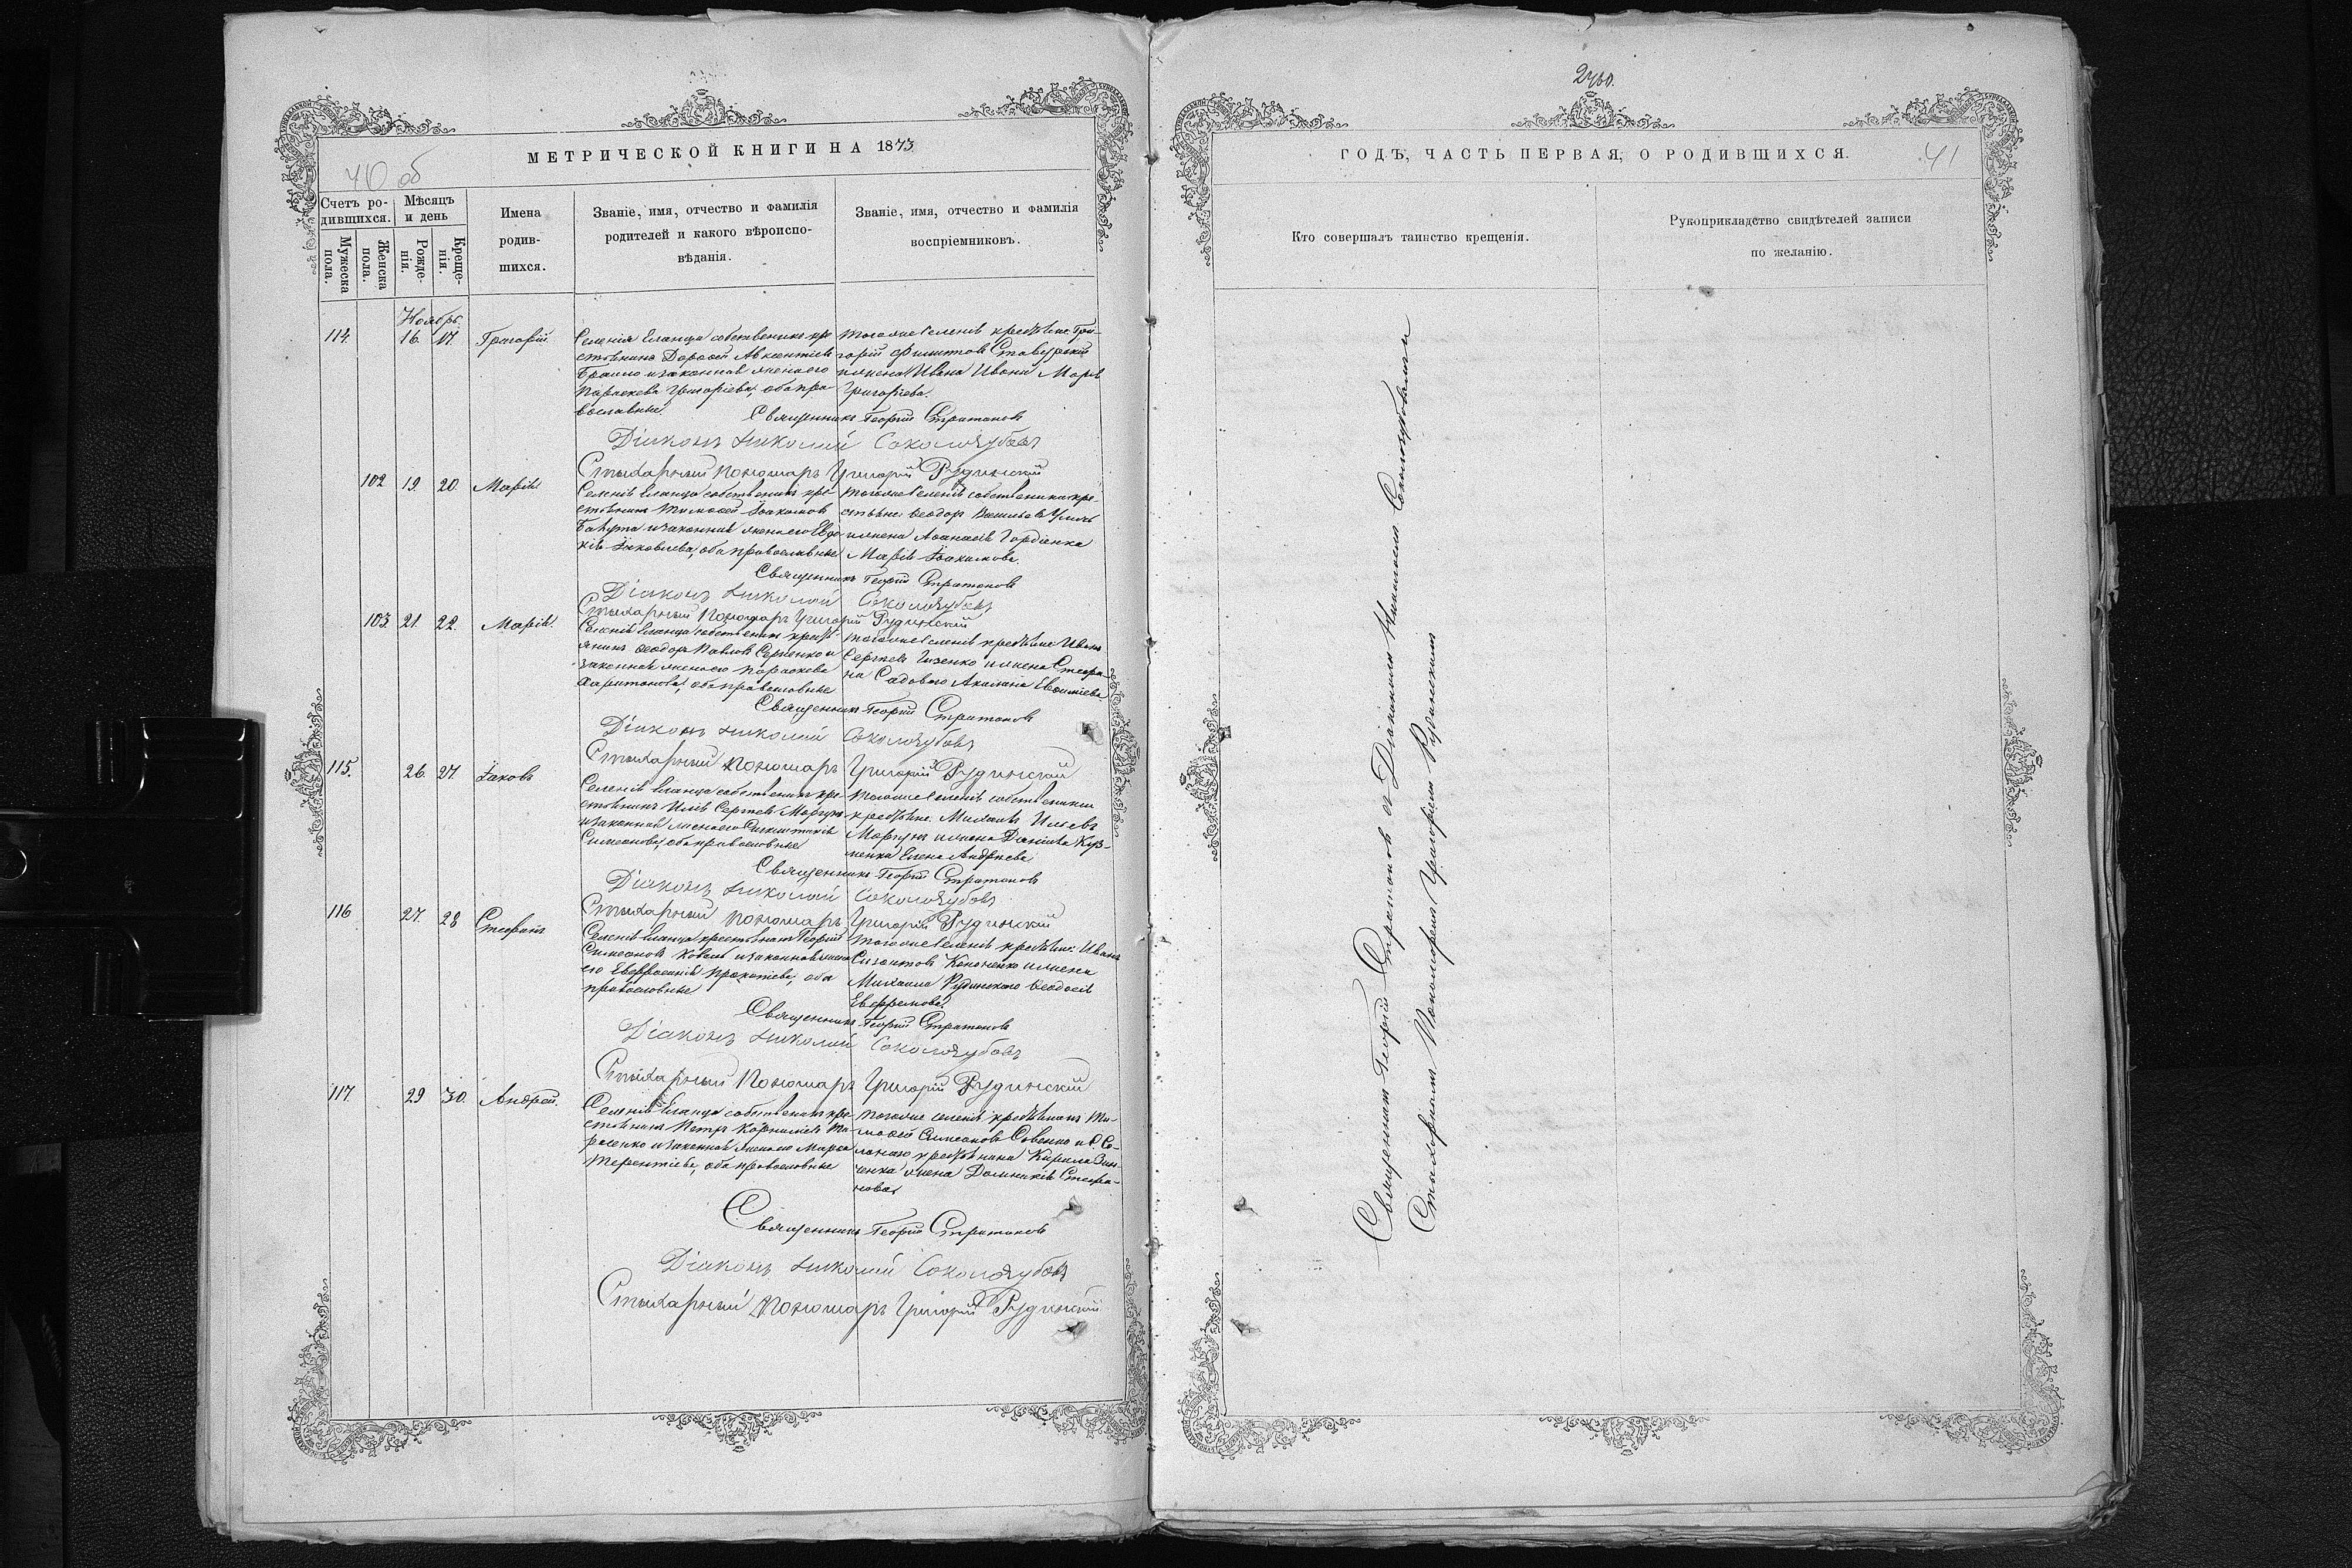 МЕТРИЧЕСКОЙ КНИГИ НА 1873
40 об
Счетъ ро-
дившихся.
Мѣсяцъ
и день
Мужеска
пола.
Женска
пола.
Рожде-
нія.
Креще-
нія.
Имена
родив-
шихся.
Званіе, имя, отчество и фамилія
родителей и какого вѣроиспо-
вѣданія.
Званіе, имя, отчество и фамилія
воспріемниковъ.
Ноябрь.
114. 16. 17. Григорій.
Селенія Еланца собственикъ кре-
стьянинъ Дорофей Авксентіевъ
и законная жена его
Параскева Григоріева, оба пра-
вославные.
того же селенія крестьяне: Гри-
горій Филиповъ
и жена Ивана
Григоріева.
Священникъ Георгій Стратоновъ
Діаконъ Николай Сокологубовъ
Стихарный Пономарь Григорій Рудинскій
102 19. 20. Марія
Селенія Еланца собственикъ кре-
стьянинъ Тимофей Іоакимовъ
и законная жена его Евдо-
кія Іаковлева, оба православные
того же селенія собственики кре-
стьяне: Ѳеодоръ Васильевъ
и жена Аѳанасія Гордіенка
Марія Іоакимова.
Священникъ Георгій Стратоновъ
Діаконъ Николай Сокологубовъ
Стихарный Пономарь Григорій Рудинскій
103. 21. 22. Марія.
Селенія Еланца собственикъ кресть-
янинъ Ѳеодоръ Павловъ Сергенко и
законная жена его Параскева
Харитонова, оба православные
того же селенія крестьяне Иванъ
Сергѣевъ и жена Стефа-
на Садового Акилина Евѳиміева
Священникъ Георгій Стратоновъ
Діаконъ Николай Сокологубовъ
Стихарный Пономарь Григорій Рудинскій
115. 26. 27. Іаковъ
Селенія Еланца собственикъ кре-
стьянинъ Илія Сергѣевъ
и законная жена его
Симеонова, оба православные
того же селенія собственики
крестьяне: Михаилъ Ильевъ
и жена Даніила Куз-
менка Елена Андреева
Священникъ Георгій Стратоновъ
Діаконъ Николай Сокологубовъ
Стихарный Пономарь Григорій Рудинскій
116 27. 28 Стефанъ
Селенія Еланца крестьянинъ Георгій
Симеоновъ Коваль и законная жена
его Евфросинія Прокопіева, оба
православные
того же селенія крестьяне: Иванъ
Кононенко и жена
Михаила Рудинского Ѳеодосія
Евфремова.
Священникъ Георгій Стратоновъ
Діаконъ Николай Сокологубовъ
Стихарный Пономарь Григорій Рудинскій
117. 29 30. Андрей.
Селенія Еланца собственикъ кре-
стьянинъ Петръ Корниліевъ Та-
расенко и законная жена его Марѳа
Терентіева, оба православные
того же селенія крестьянинъ Ти-
мофей Симеоновъ
крестьянина Кирила Зин-
ченка жена Домникія Стефа-
нова
Священникъ Георгій Стратоновъ
Діаконъ Николай Сокологубовъ
Стихарный Пономарь Григорій Рудинскій
ГОДЪ, ЧАСТЬ ПЕРВАЯ, О РОДИВШИХСЯ.
41
Кто совершалъ таинство крещенія.
Рукоприкладство свидѣтелей записи
по желанію.
Священникъ Георгій Стратоновъ съ Діакономъ Николаемъ Сокологубовымъ
Стихарнымъ Пономаремъ Григоріемъ Рудинскимъ